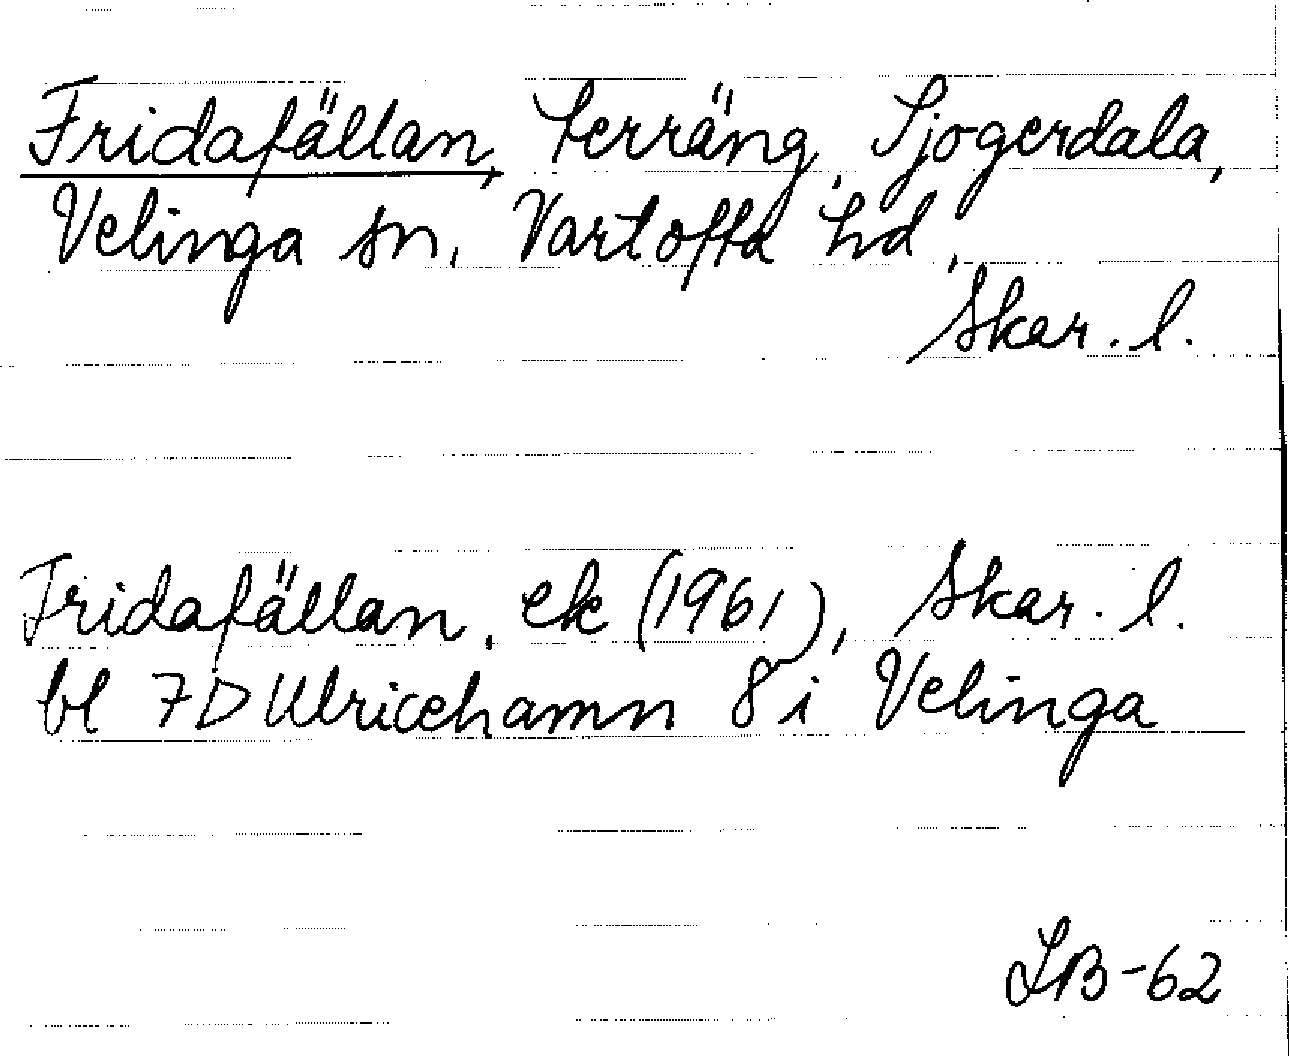 Fridafällan, terräng, Sjogerdala,
Velinga sn, Vartofta hd,
Skar. l.
Fridafällan, ek (1961), Skar. l.
bl 7D Ulricehamn 8 i Velinga
LB-62